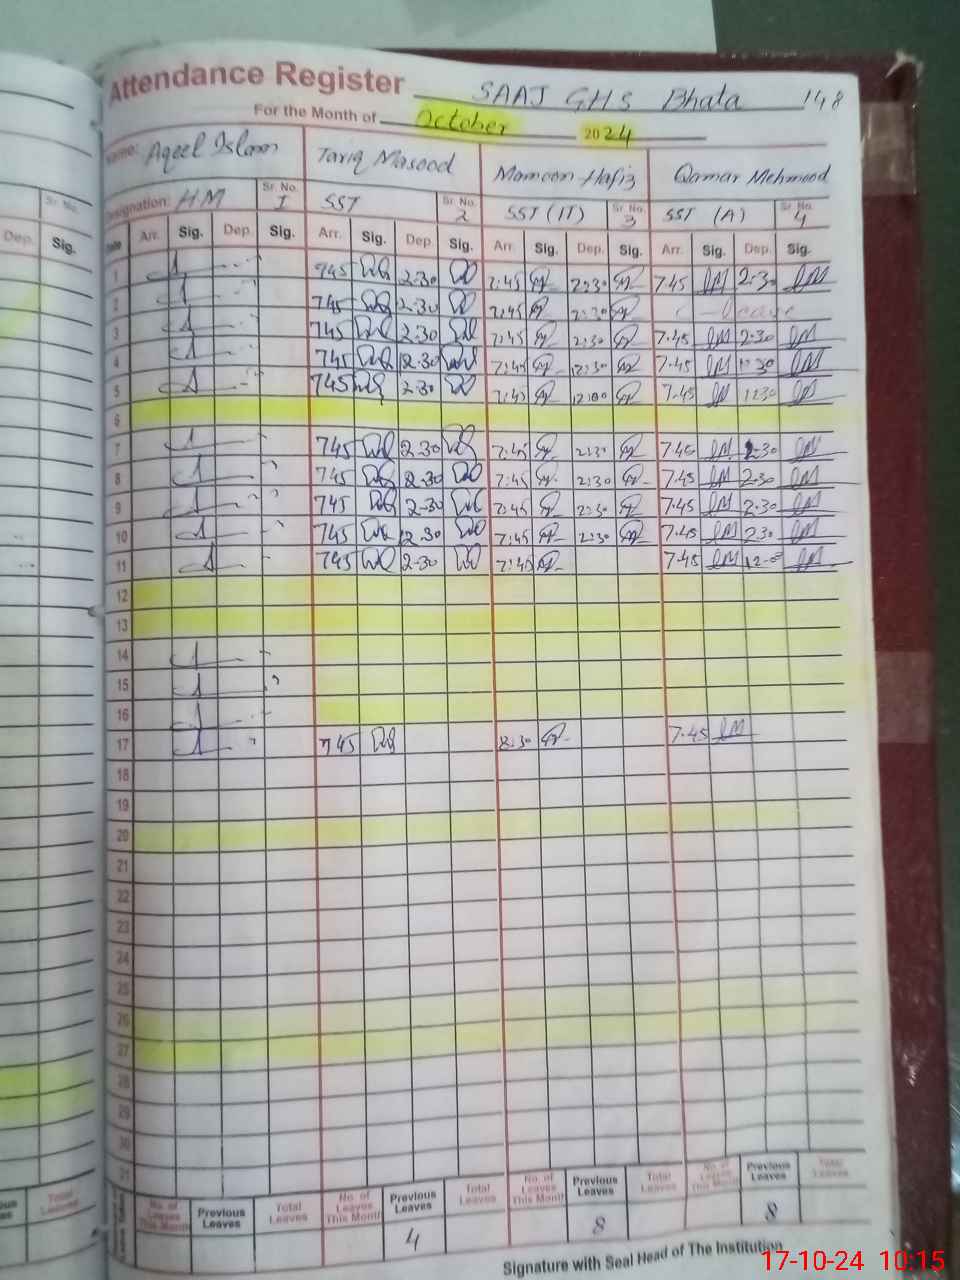 Attendance Register SAAJ GHS Bhata 148
For the Month of October 2024
Name: Aqeel Islam Tariq Masood Mamoon Hafiz Qamar Mehmood
Designation: HM Sr. No. 1 SST Sr. No. 2 SST (IT) Sr. No. 3 SST (A) Sr. No. 4
Date Arr. Sig. Dep. Sig. Arr. Sig. Dep. Sig. Arr. Sig. Dep. Sig. Arr. Sig. Dep. Sig.
1 745 2:30 7:45 2:30 7.45 2:30
2 745 2:30 7:45 2:30 c-Leave
3 745 2:30 7:45 2:30 7.45 2:30
4 745 12:30 7:45 12:30 7.45 12:30
5 745 2:30 7:45 12:00 7.45 1230
6
7 745 2:30 7:45 2:30 7.45 2:30
8 745 2:30 7:45 2:30 7.45 2:30
9 745 2:30 7:45 2:30 7.45 2:30
10 745 2:30 7:45 2:30 7.45 2:30
11 745 2:30 7:45 7.45
12
13
14
15
16
17 745 8:30 7.45
18
19
20
21
22
23
24
25
26
27
28
29
30
31
No. of Leaves This Month Previous Leaves Total Leaves No. of Leaves This Month Previous Leaves Total Leaves No. of Leaves This Month Previous Leaves Total Leaves No. of Leaves This Month Previous Leaves Total Leaves
4 8 8
Signature with Seal Head of The Institution
17-10-24 10:15